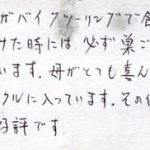 がバイクツーリングで食
けた時には、必ず巣ご
います。母がとても喜ん
クルに入っています。その他
好評です。